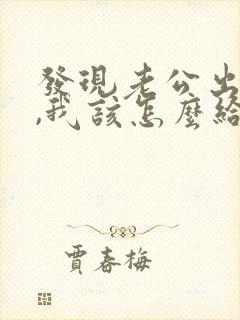 發現老公出
,我該怎麼給
賈春梅